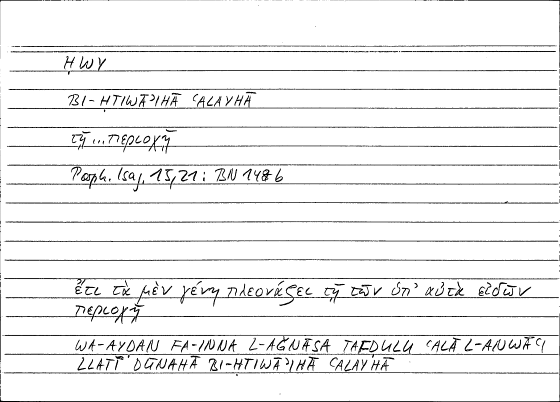 ḤWY
BI-ḤTIWĀʾIHĀ ʿALAYHĀ
τῇ...περιοχῇ
Porph. Isag. 15,21: BN 148b
ἔτι τὰ μὲν γένη πλεονάζει τῇ τῶν ὑπ' αὐτὰ εἰδῶν
περιοχῇ
WA-AYḌAN FA-INNA L-AǦNĀSA TAFḌULU ʿALĀ L-ANWĀʿI
LLATĪ DŪNAHĀ BI-ḤTIWĀʾIHĀ ʿALAYHĀ